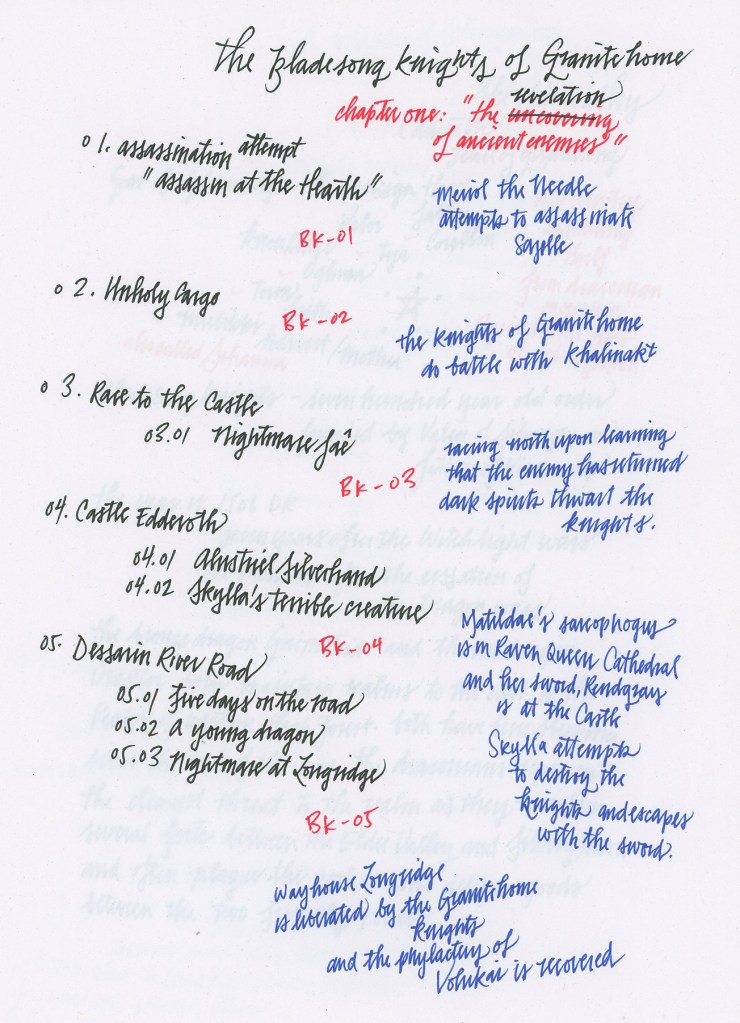 the Bladesong Knights of Granitehome
chapter one: "the uncovering revelation
of ancient enemies"
0 1. assassination attempt
"assassin at the Hearth"
BK-01
Meriol the Needle
attempts to assassinate
Sazelle
0 2. Unholy Cargo
BK-02
the Knights of Granitehome
do battle with Khalinakt
0 3. Race to the Castle
03.01 Nightmare
BK-03
racing north upon learning
that the enemy has returned
dark spirits thwart the
Knights.
04. Castle Edderoth
04.01 Alustriel Silverhand
04.02 Skylla's terrible creature
BK-04
Matildae's sarcophogus
is in Raven Queen Cathedral
and her sword,
is at the Castle
Skylla attempts
to destroy the
Knights and escapes
with the sword.
05. Dessarin River Road
05.01 Five days on the road
05.02 A young dragon
05.03 Nightmare at Longridge
BK-05
Wayhouse Longridge
is liberated by the Granitehome
Knights
and the phylactery of
Volukai is recovered